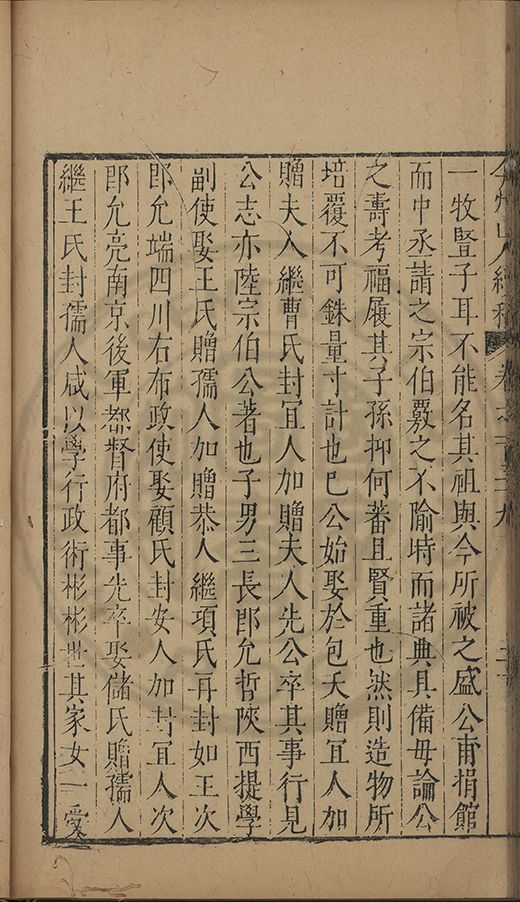 弇州山人續稿 卷之一百二十九
一牧豎子耳不能名其祖與今所被之盛公甫捐館
而中丞請之宗伯覈之不隃時而諸典具備毋論公
之壽考福履其子孫抑何蕃且賢重也然則造物所
培覆不可銖量寸計也已公始娶於包夭贈宜人加
贈夫人繼曹氏封宜人加贈夫人先公卒其事行見
公志亦陸宗伯公著也子男三長即允哲陝西提學
副使娶王氏贈孺人加贈恭人繼項氏再封如王次
即允端四川右布政使娶顧氏封安人加封宜人次
即允亮南京後軍都督府都事先卒娶儲氏贈孺人
繼王氏封孺人咸以學行政術彬彬世其家女一爱